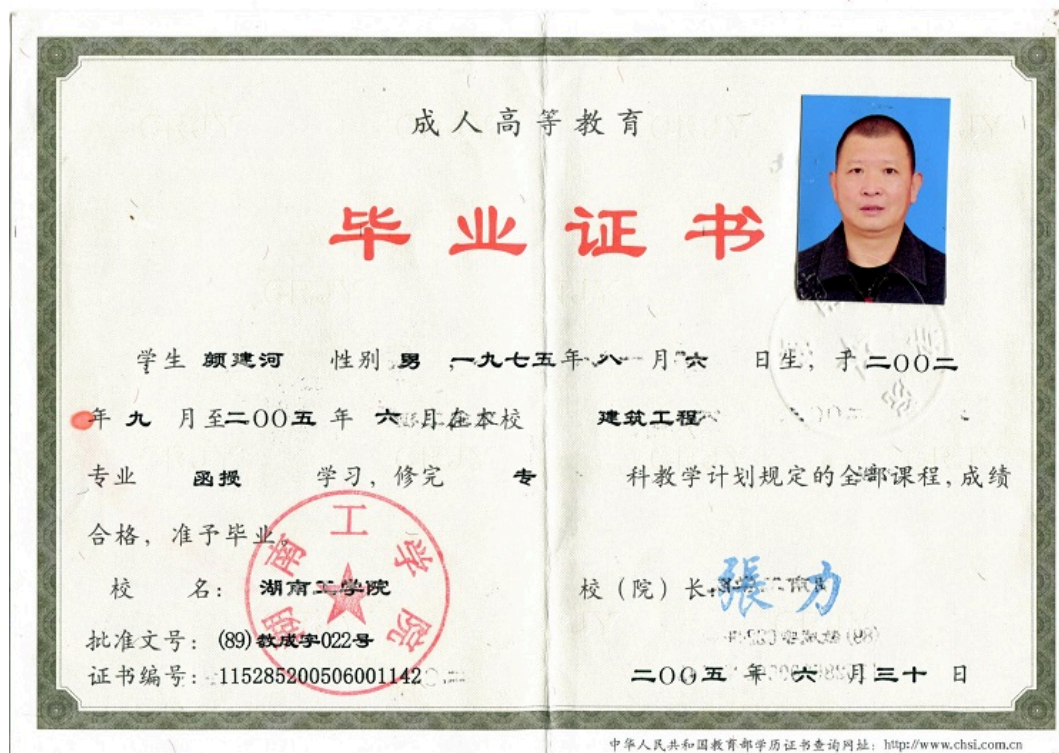 成人高等教育
毕业证书
学生 颜建河 性别 男 ,一九七五年 八 月 六 日生,于 二〇〇二
年 九 月至二〇〇五 年 六 月在本校 建筑工程
专业 函授 学习,修完 专 科教学计划规定的全部课程,成绩
合格,准予毕业。
校 名: 湖南工学院 校(院)长: 張力
湖南工学院
批准文号: (89)教成字022号
证书编号: 115285200506001142 二〇〇五 年 六 月三十 日
中华人民共和国教育部学历证书查询网址: http://www.chsi.com.cn